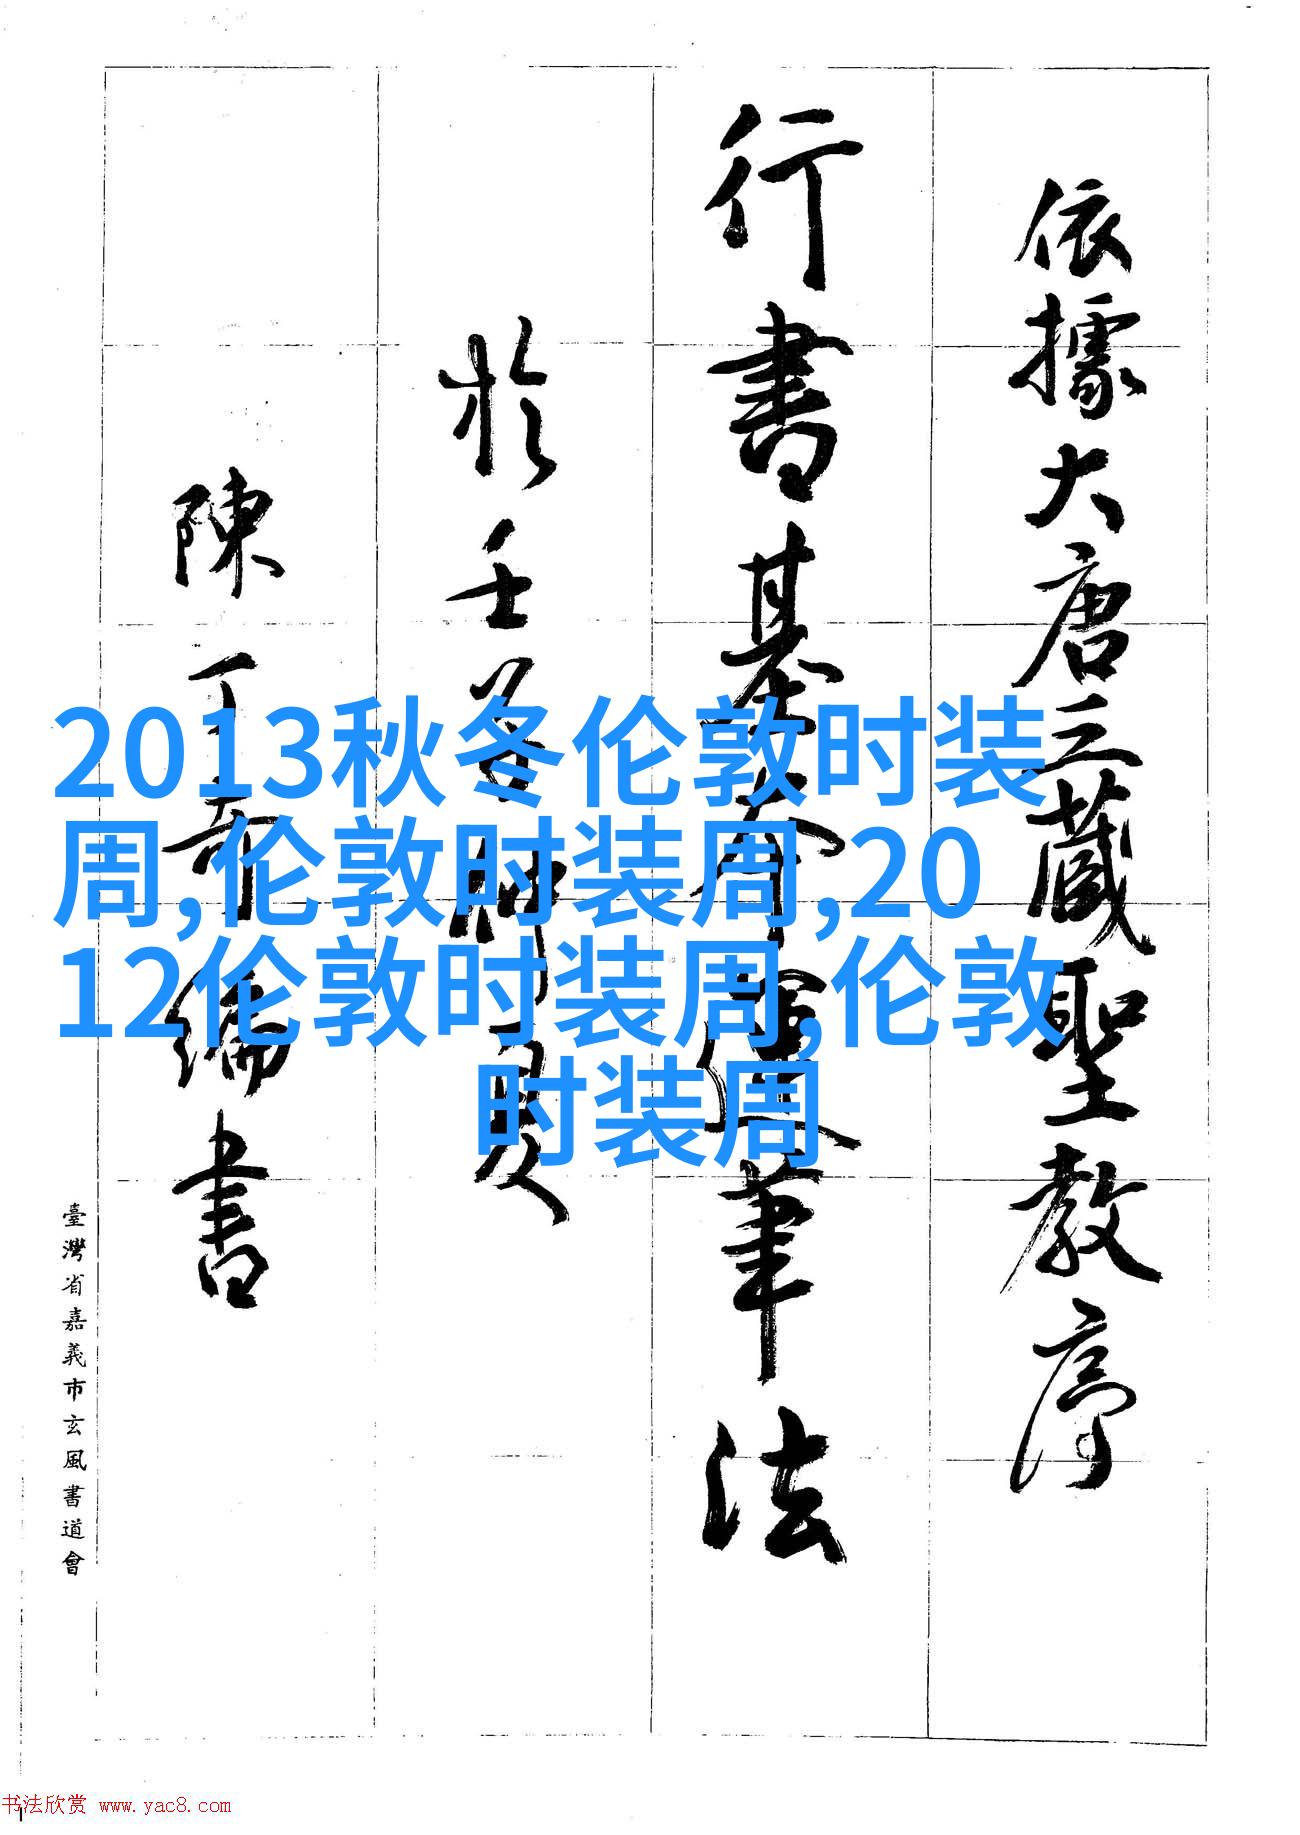 依據大唐三藏聖教序
行書基本運筆法
於壬
陳丁奇編書
臺灣省嘉義市玄風書道會
2013秋冬伦敦时装
周,伦敦时装周,20
12伦敦时装周,伦敦
时装周
书法欣赏 www.yac8.com
1